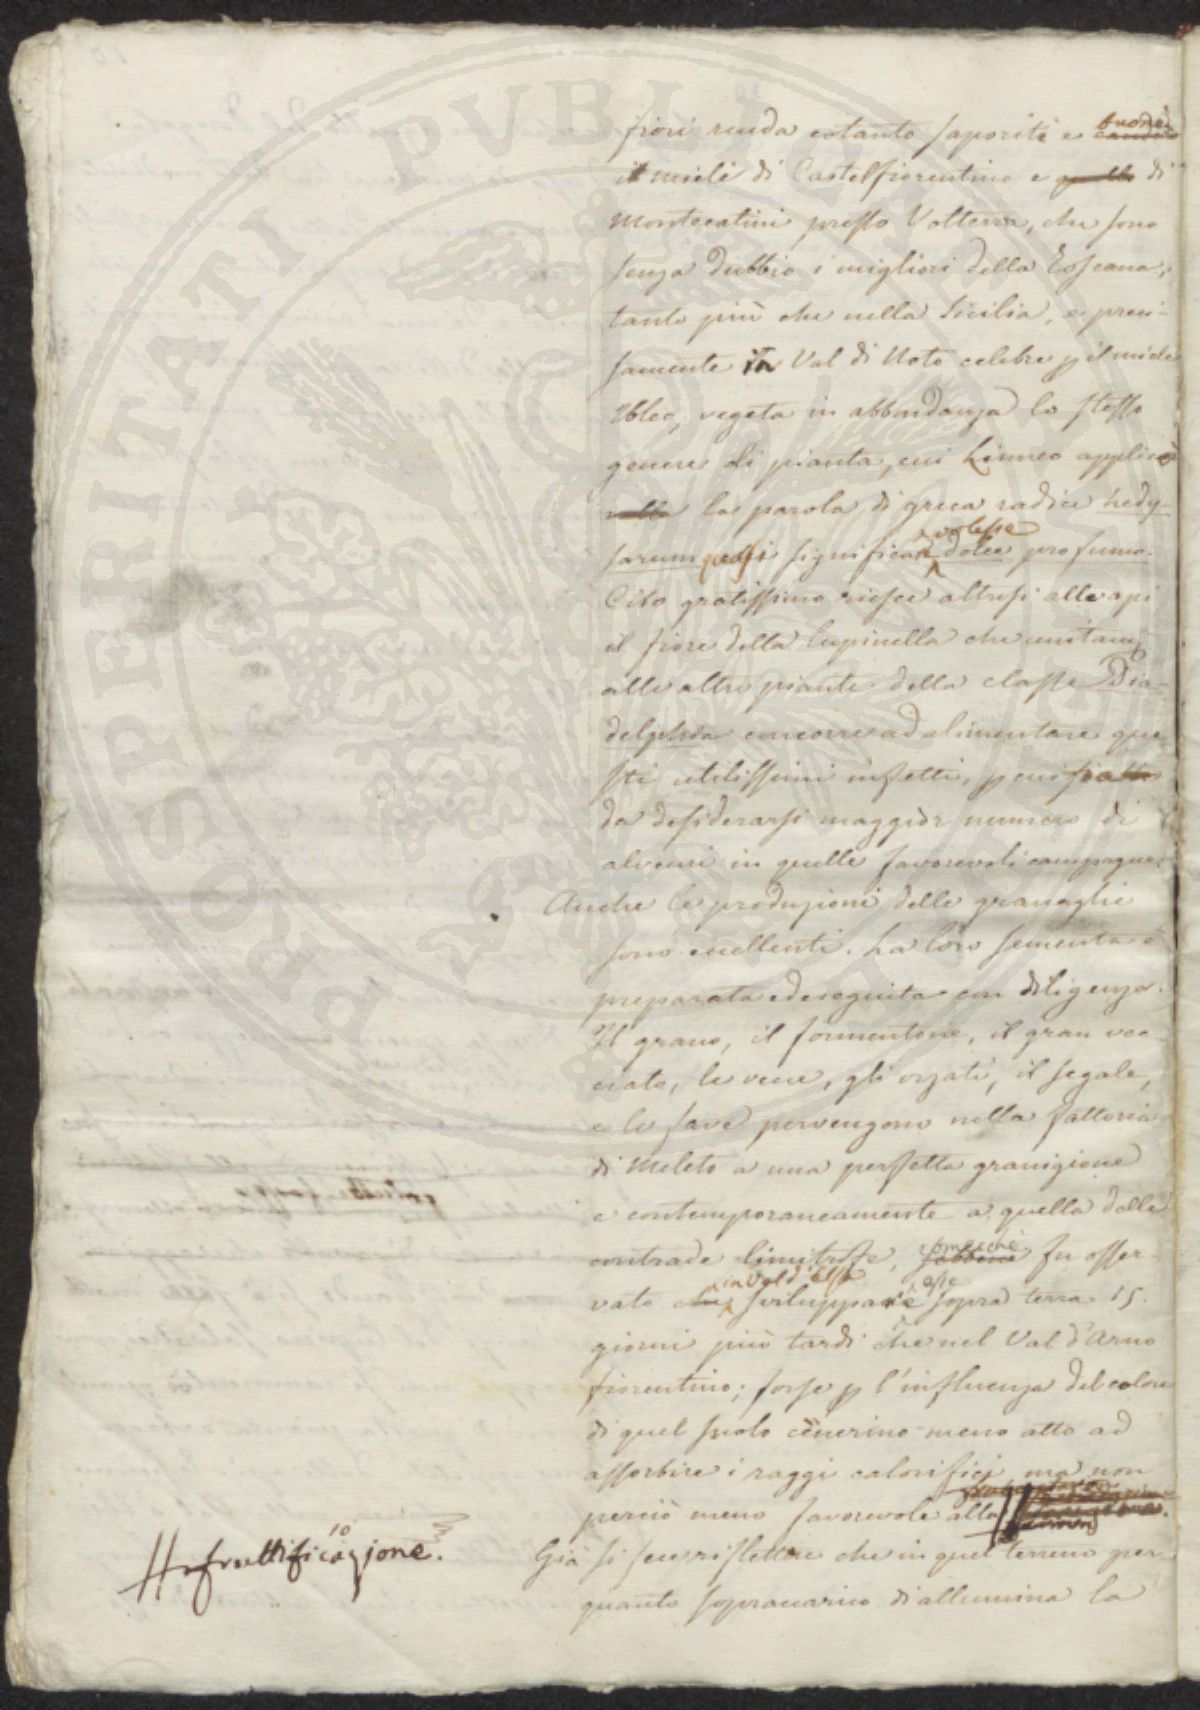 fiori renda cotanto saporiti e buoni
il mieli di Castelfiorentino e quello di
Montecatini presso Volterra, che sono
senza dubbio i migliori della Toscana;
tanto più che nella Sicilia, e preci-
samente in Val di Noto celebre p il miele
Ibleo, vegeta in abbondanza lo stesso
genere di pianta, cui Linneo applicò
la parola di greca radice hedy-
sarum quasi significar volesse dolce profumo.
Cibo gratissimo riesce altresi alle api
il fiore della lupinella che unitam
alle altre piante della classe Dia-
delphia concorre ad alimentare que
sti utilissimi insetti, p cui
da desiderarsi maggior numero di
alveari in quelle favorevoli campagne.
Anche le produzioni delle granaglie
sono eccellenti. La loro sementa è
preparata ed eseguita con diligenza.
Il grano, il formentone, il gran vec-
ciato, le vecce, gli orzati, il segale,
e le fave pervengono nella fattoria
di Meleto a una perfetta granigione
e contemporaneamente a quella delle
contrade limitrofe, sebbene comecchè fu osser-
vato che in Val d'Elsa svilupparsi esse sopra terra 15.
giorni più tardi che nel Val d'Arno
fiorentino; forse p l'influenza del colore
di quel suolo cenerino meno atto ad
assorbire i raggi calorifici, ma non
perciò meno favorevole alla
# fruttificazione.
Già si fece riflettere che in quel terreno per
quanto sopraccarico di allumina la
PROSPERITATI PVBLICAE